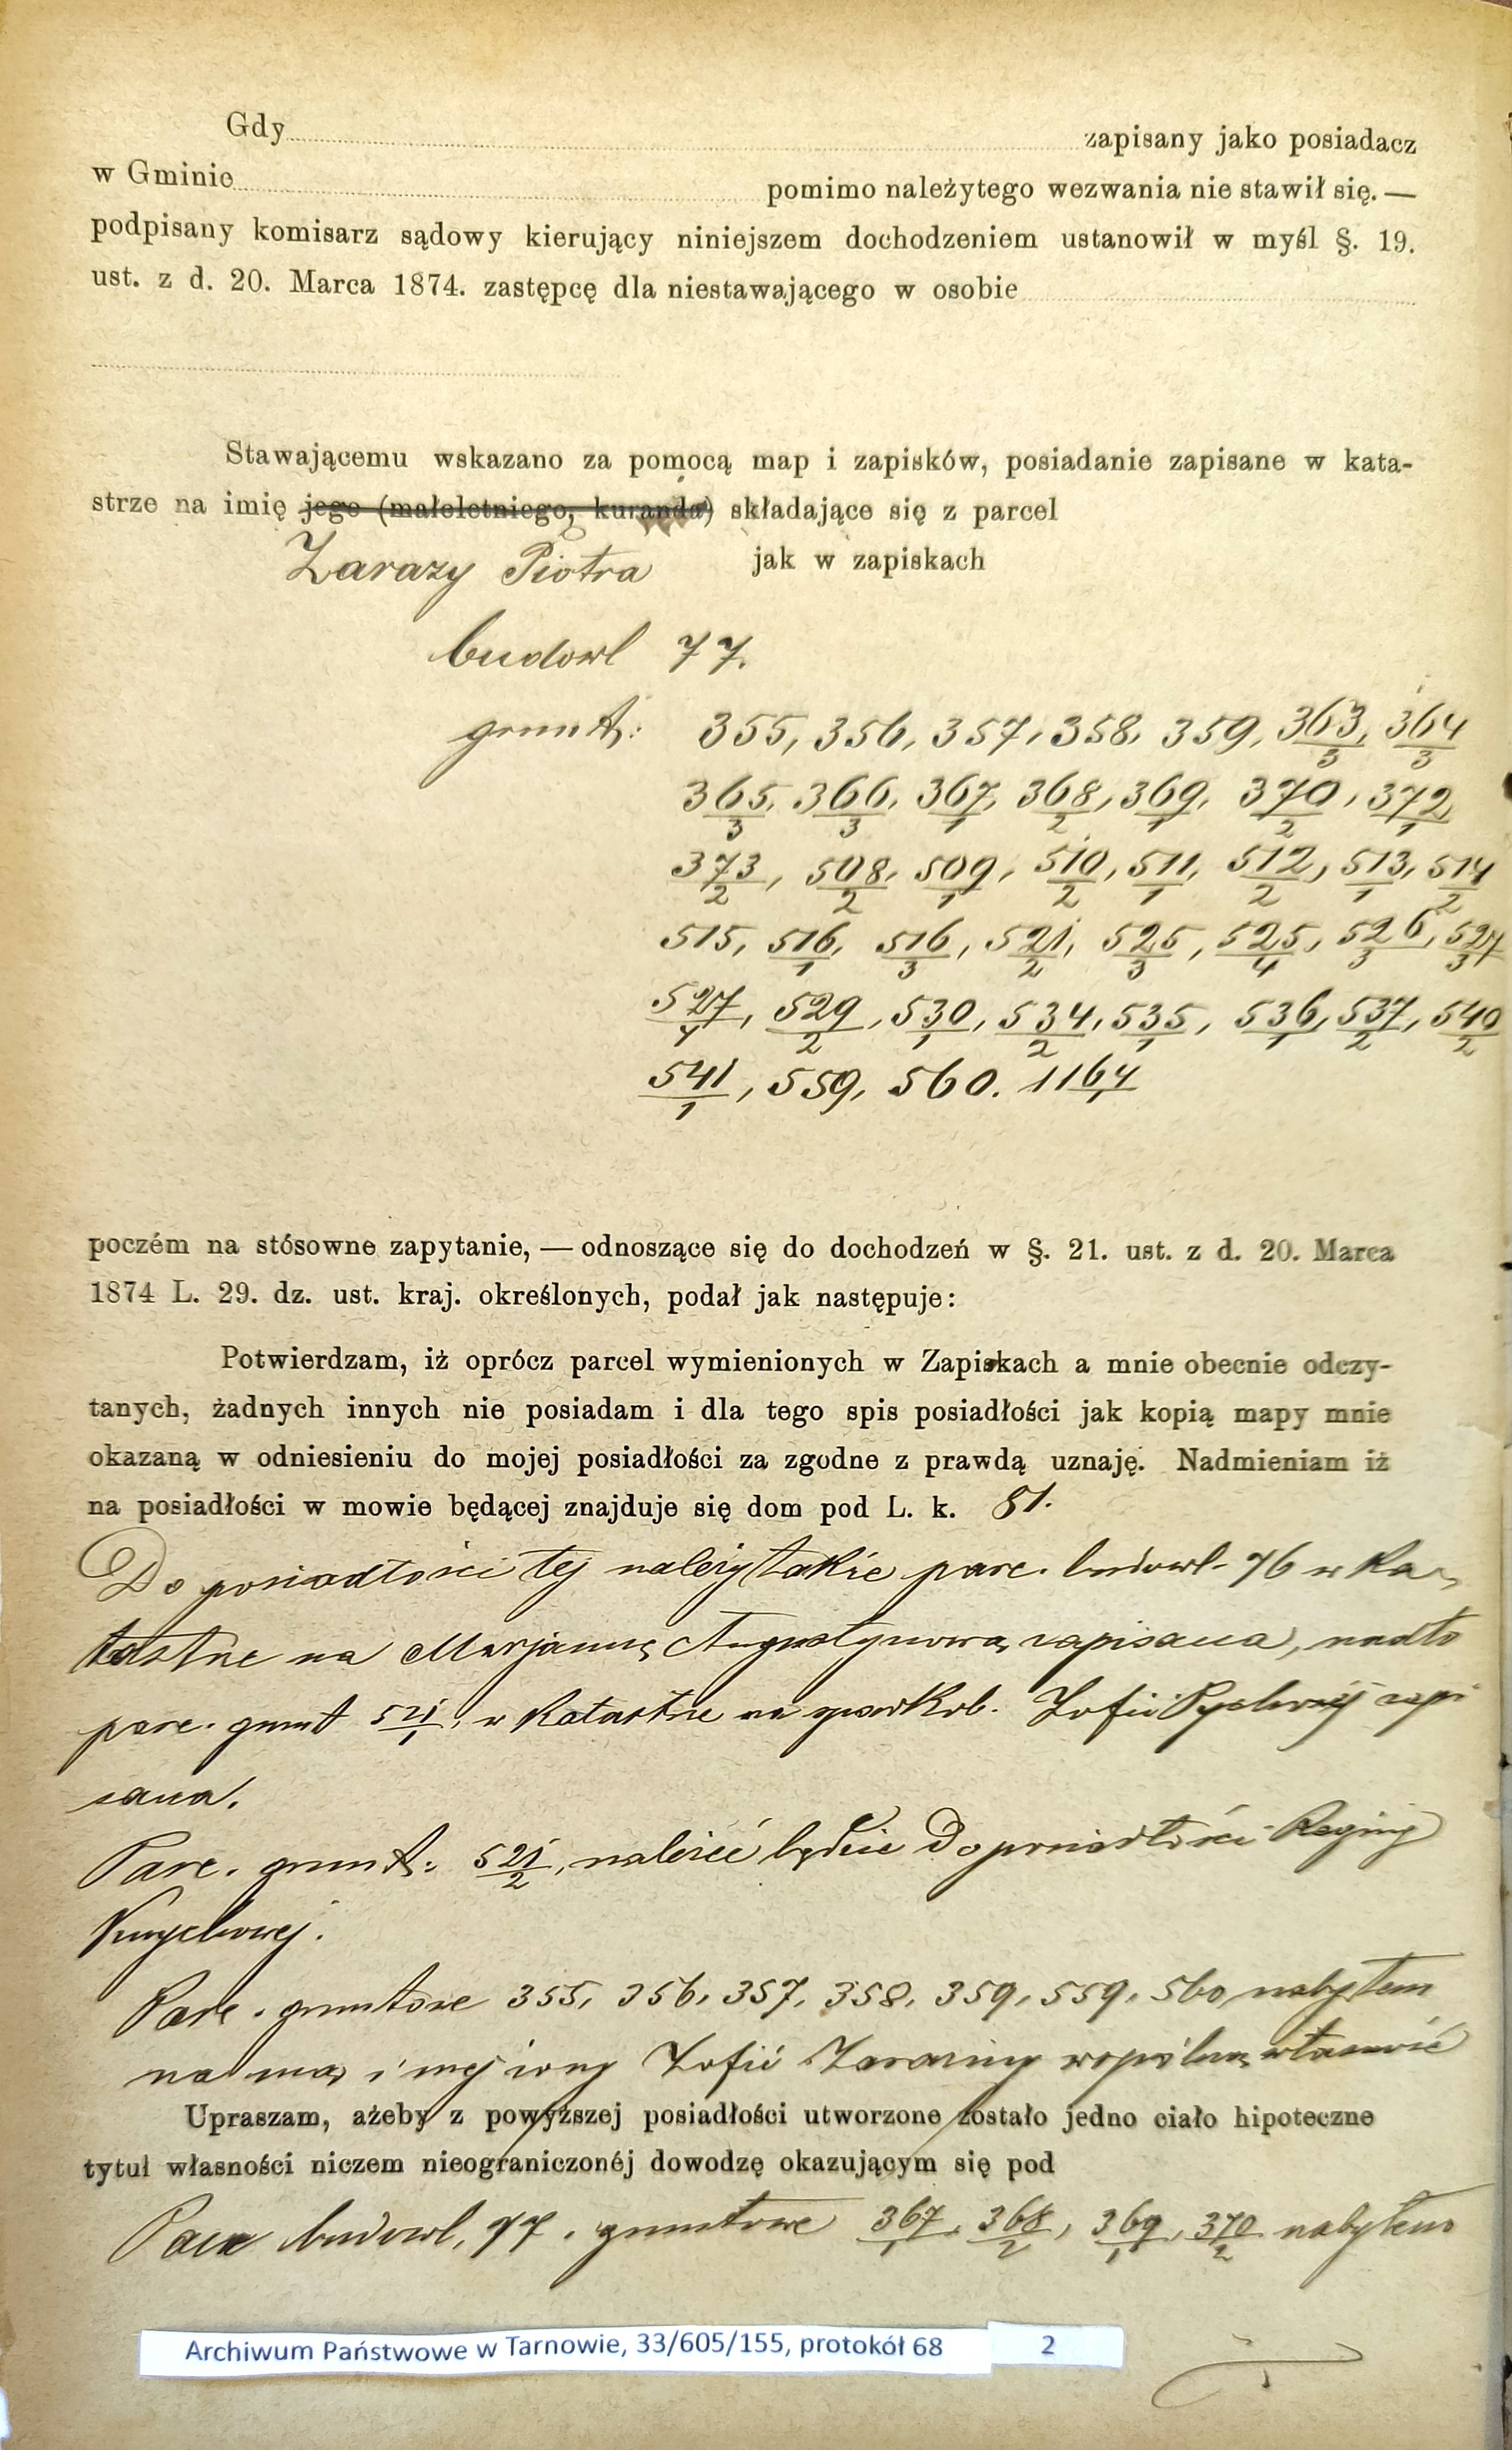 Gdy zapisany jako posiadacz
w Gminie pomimo należytego wezwania nie stawił się. —
podpisany komisarz sądowy kierujący niniejszem dochodzeniem ustanowił w myśl §. 19.
ust. z d. 20. Marca 1874. zastępcę dla niestawającego w osobie
Stawającemu wskazano za pomocą map i zapisków, posiadanie zapisane w kata-
strze na imię jego (małoletniego, kuranda) składające się z parcel
Zarazy Piotra jak w zapiskach
budowl 77.
grunt: 355, 356, 357, 358, 359, 363/3, 364/3
365/3, 366/3, 367/1, 368/2, 369/1, 370/2, 372/1
373/2, 508/2, 509/1, 510/2, 511/1, 512/2, 513/1, 514/2
515, 516/1, 516/3, 521/2, 525/3, 525/4, 526/3, 527/3
527/4, 529/2, 530/1, 534/2, 535/1, 536/1, 537/2, 540/2
541/1, 559, 560. 1164/1
poczém na stósowne zapytanie, — odnoszące się do dochodzeń w §. 21. ust. z d. 20. Marca
1874 L. 29. dz. ust. kraj. określonych, podał jak następuje:
Potwierdzam, iż oprócz parcel wymienionych w Zapiskach a mnie obecnie odczy-
tanych, żadnych innych nie posiadam i dla tego spis posiadłości jak kopią mapy mnie
okazaną w odniesieniu do mojej posiadłości za zgodne z prawdą uznaję. Nadmieniam iż
na posiadłości w mowie będącej znajduje się dom pod L. k. 81.
Do posiadłości tej należy także parc. budowl. 76 w ka-
tastrze na Marjannę Augustynową zapisana, nadto
parc. grunt 521/1, w katastrze na Zofii zapi
sana.
Parc. grunt: 521/2, należeć będzie do posiadłości Reginy
Parc. gruntowe 355, 356, 357, 358, 359, 559, 560 nabyłem
na mą i mej żony Zofii Zaraziny wspólną własność
Upraszam, ażeby z powyższej posiadłości utworzone zostało jedno ciało hipoteczne
tytuł własności niczem nieograniczonéj dowodzę okazującym się pod
Parc budowl. 77. gruntowe 367/1, 368/2, 369/1, 370/2 nabyłem
Archiwum Państwowe w Tarnowie, 33/605/155, protokół 68 2